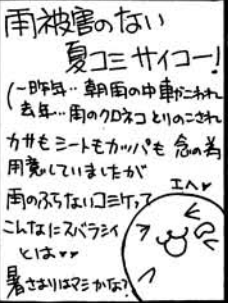 雨被害のない
夏コミ サイコー!
(~昨年‥朝雨の中車がこわれ
去年…雨のクロネコとりのこされ
カサもシートもカッパも 念の為
用意していましたが
雨のふらないコミケって
エヘ♥
こんなにスバラシイ
とは♥♥
暑さよりはマシかな?